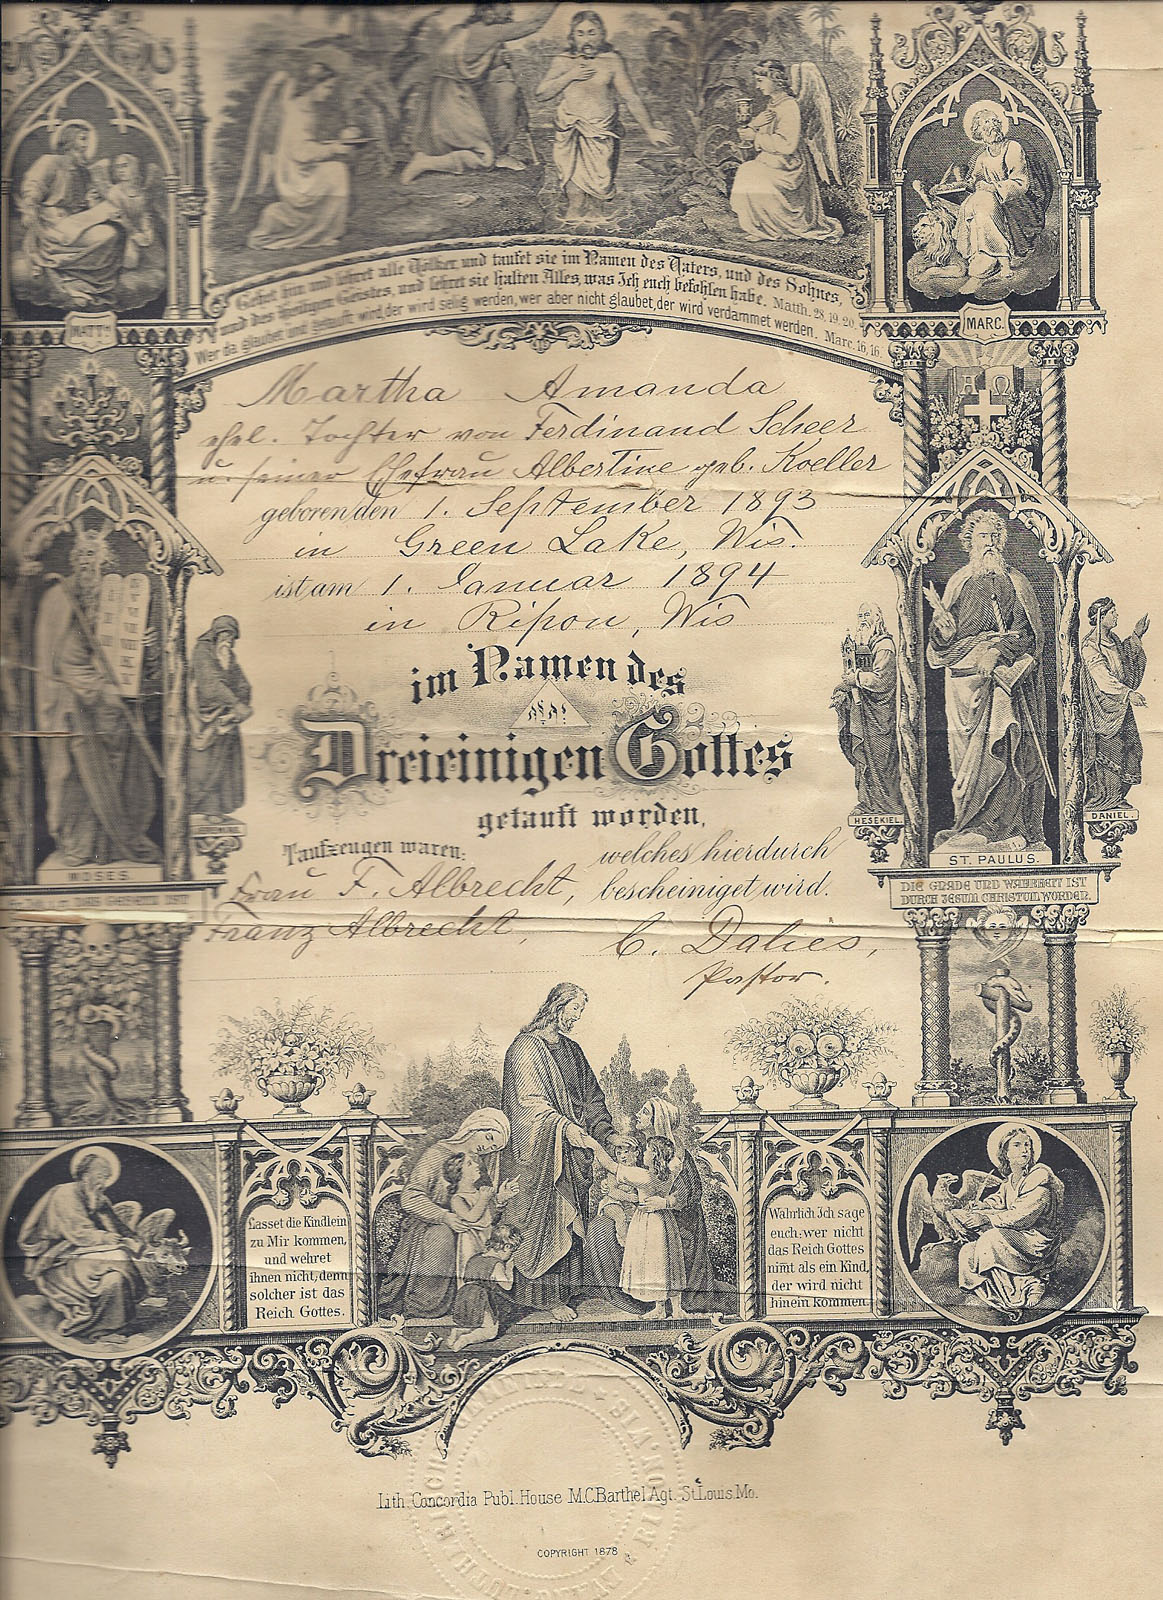 Gehet hin und lehret alle Völker und taufet sie im Namen des Vaters, und des Sohnes,
und des heiligen Geistes, und lehret sie halten Alles, was Ich euch befohlen habe. Matth. 28, 19. 20.
Wer da glaubet und getauft wird, der wird selig werden, wer aber nicht glaubet, der wird verdammet werden. Marc. 16, 16.
MATTH.
MARC.
Α Ω
Martha Amanda
ehel. Tochter von Ferdinand Scheer
u. seiner Ehefrau Albertine geb. Koeller
geboren den 1. September 1893
in Green Lake, Wis.
ist am 1. Januar 1894
in Ripon, Wis
im Namen des
Dreieinigen Gottes
getauft worden,
Taufzeugen waren:
welches hierdurch
Frau F. Albrecht,
bescheiniget wird.
Franz Albrecht,
C. Dalies,
Pastor.
MOSES
HESEKIEL.
ST. PAULUS.
DANIEL.
DIE GNADE UND WAHRHEIT IST
DURCH JESUM CHRISTUM WORDEN.
Lasset die Kindlein
zu Mir kommen,
und wehret
ihnen nicht, denn
solcher ist das
Reich Gottes.
Wahrlich Ich sage
euch: wer nicht
das Reich Gottes
nim̄t als ein Kind,
der wird nicht
hinein kommen
Lith. Concordia Publ. House M.C. Barthel Agt. St. Louis Mo.
COPYRIGHT 1878